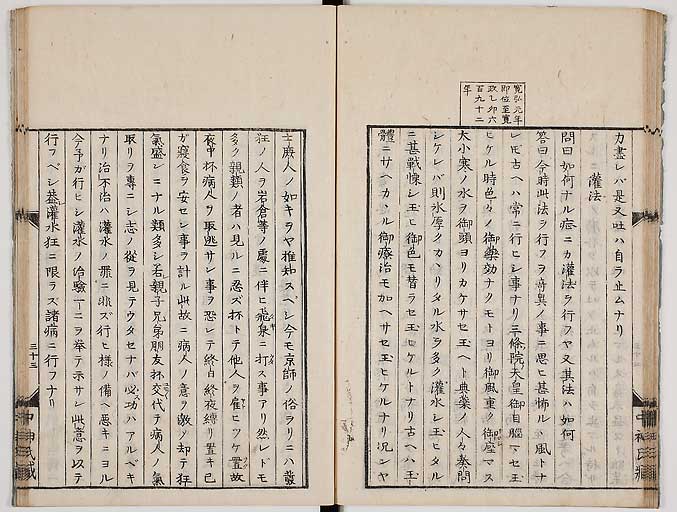 力盡レバ是又吐ハ自ラ止ムナリ
灌法
問曰如何ナル症ニカ灌法ヲ行フヤ又其法ハ如何
答曰今時此法ヲ行フヲ奇異ノ事ニ思ヒ甚怖ルヽ風トナ
レモ古ヘハ常ニ行ヒシ事ナリ三條院天皇御自腦マセ玉
ヒケル時色々ノ御藥効ナクモトヨリ御風重ク御座マス
大小寒ノ水ヲ御頭ヨリカケサセ玉ヘト典藥ノ人々奏問
シケレバ則氷厚クカヽリタル水ヲ多ク灌水シ玉ヒタル
ニ甚戰慄シ玉ヒ御色モ替ラセ玉ヒケルトナリ古ヘハ玉
體ニサヘカヽル御療治モ加ヘサセ玉ヒケルナリ況ンヤ
寛弘元年
即位至寛
政乙卯六
百九十二
年
士蔗人ノ如キヲヤ推知スベシ今モ京師ノ俗ヲリニハ發
狂ノ人ヲ岩倉等ノ處ニ伴ヒ飛泉ニ打ス事アリ然レドモ
多ク親類ノ者ハ見ルニ忍ズ抔トテ他人ヲ雇ヒツケ置故
夜中抔病人ヲ取逃サン事ヲ恐レテ終日終夜縛リ置キ已
ガ寢食ヲ安セン事ヲ計ル此故ニ病人ノ意ヲ激ノ却テ狂
氣盛シニナル類多シ若親子兄弟朋友抔交代テ病人ノ氣
取リヲ專ニシ志ノ從ヲ見テウタセナバ必功ハアルベキ
ナリ治不治ハ灌水ノ罪ニ非ズ行ヒ様ノ備ヘ惡キニヨル
今予ガ行ヒシ灌水ノ治驗一二ヲ擧テ示サン此意ヲ以テ
行フベシ蓋灌水狂ニ限ラズ諸病ニ行フナリ
三十三
中神氏藏